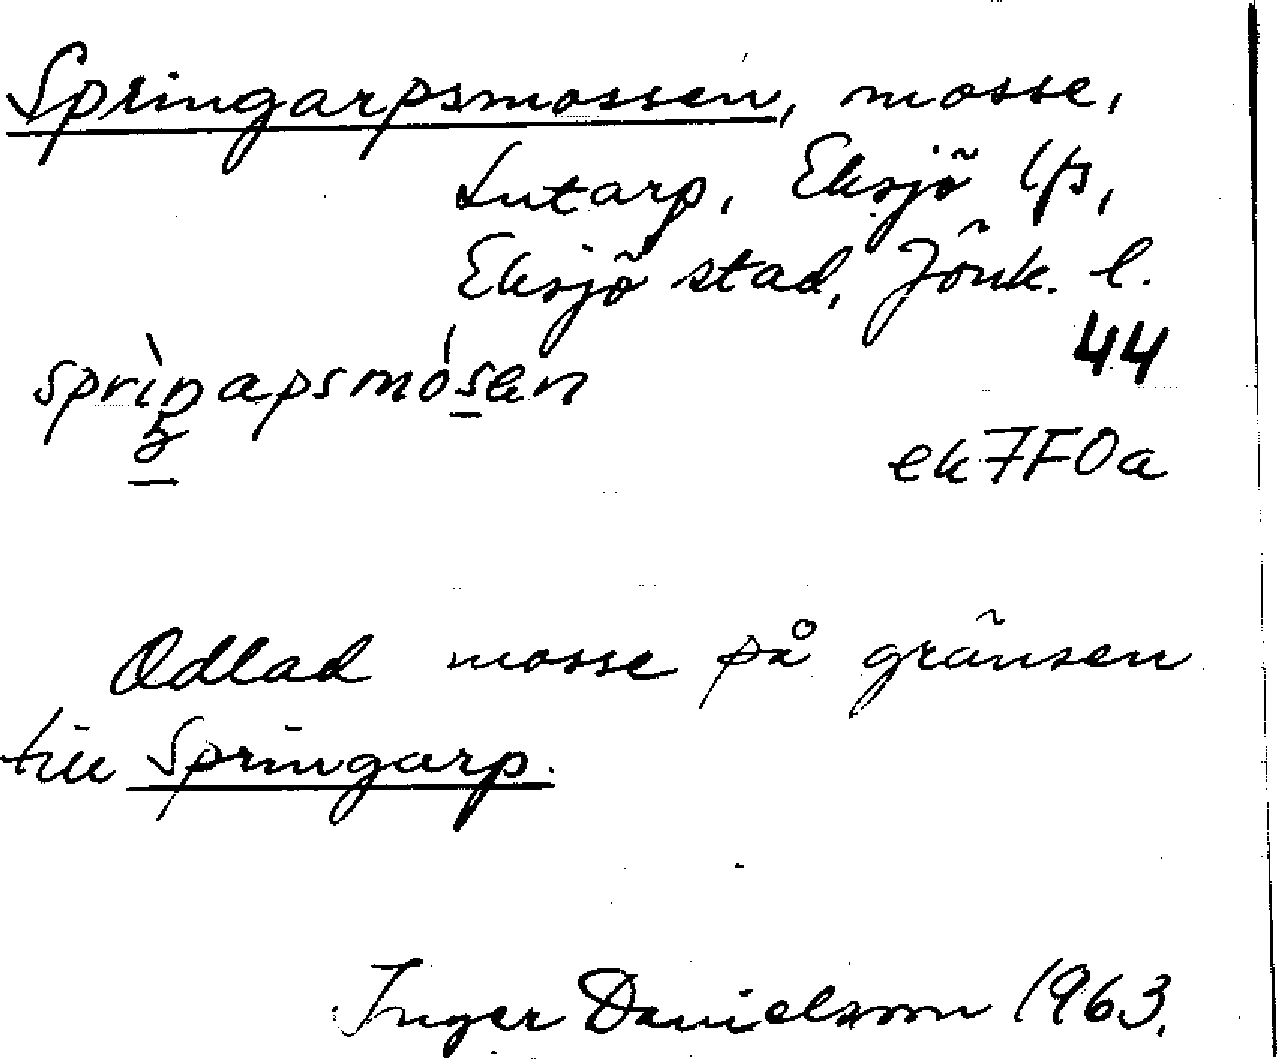 Springarpsmossen, mosse,
Lutarp, Eksjö lfs,
Eksjö stad, Jönk. l.
44
spriŋapsmosen
ek7F0a
Odlad mosse på gränsen
till Springarp.
Inger Danielsson 1963.